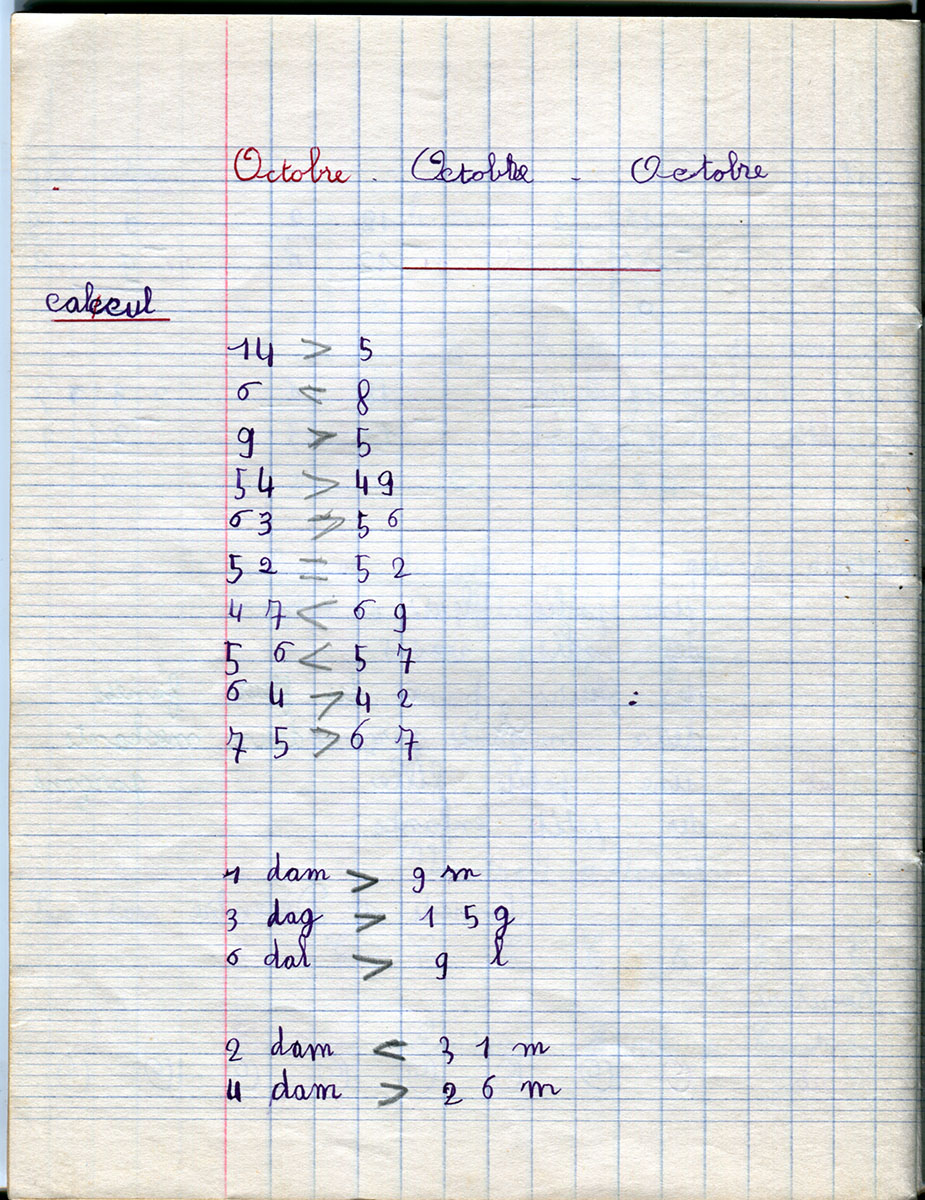 Octobre . Octobre - Octobre
calcul
14 > 5
6 < 8
9 > 5
54 > 49
63 > 56
52 = 52
47 < 69
56 < 57
64 > 42
75 > 67
1 dam > 9 m
3 dag > 15 g
6 dal > 9 l
2 dam < 31 m
4 dam > 26 m